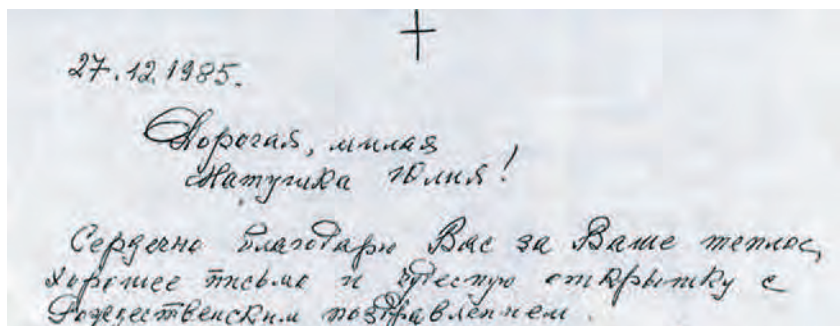 27.12.1985.
Дорогая, милая
Матушка Юлия!
Сердечно благодарю Вас за Ваше теплое,
хорошее письмо и чудесную открытку с
Рождественским поздравлением.